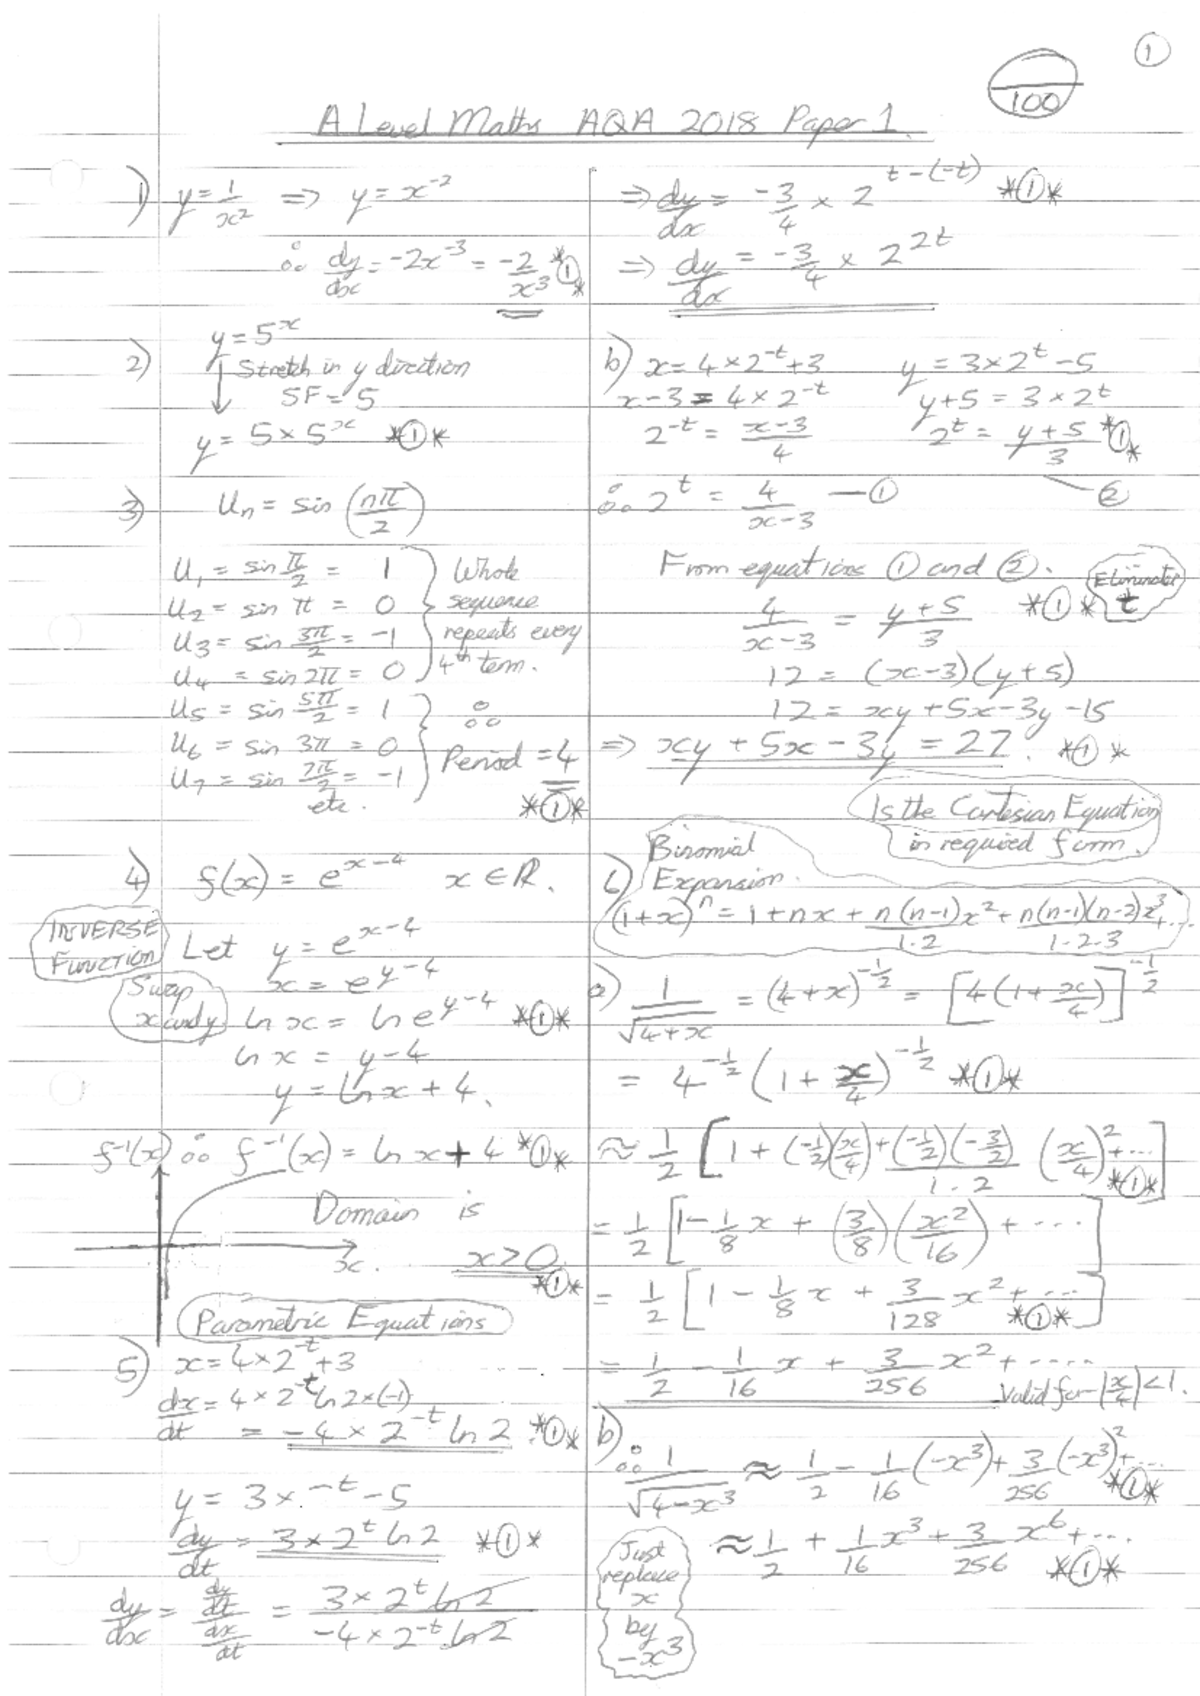 ①
/100
A Level Maths AQA 2018 Paper 1.
1) y = 1/x² ⇒ y = x⁻²
∴ dy/dx = -2x⁻³ = -2/x³ *①*
2) y = 5ˣ
↓ Stretch in y direction
SF = 5
y = 5 × 5ˣ *①*
3) Uₙ = sin (nπ/2)
U₁ = sin π/2 = 1 } Whole
U₂ = sin π = 0 sequence
U₃ = sin 3π/2 = -1 repeats every
U₄ = sin 2π = 0 4th term.
U₅ = sin 5π/2 = 1 } ∴
U₆ = sin 3π = 0 Period = 4
U₇ = sin 7π/2 = -1
etc. *①*
4) f(x) = e^(x-4) x ∈ ℝ.
INVERSE
FUNCTION
Let y = e^(x-4)
x = e^(y-4)
Swap
x and y
ln x = ln e^(y-4) *①*
ln x = y-4
y = ln x + 4.
f⁻¹(x) ∴ f⁻¹(x) = ln x + 4 *①*
Domain is
x. x > 0 *①*
Parametric Equations
5) x = 4 × 2^-t + 3
dx/dt = 4 × 2^-t ln 2 × (-1)
= -4 × 2^-t ln 2 *①*
y = 3 × -t - 5
dy/dt = 3 × 2^t ln 2 *①*
dy/dx = (dy/dt)/(dx/dt) = (3 × 2^t ln 2)/(-4 × 2^-t ln 2)
⇒ dy/dx = -3/4 × 2^(t-(-t)) *①*
⇒ dy/dx = -3/4 × 2^(2t)
b) x = 4 × 2^-t + 3 y = 3 × 2^t - 5
x - 3 = 4 × 2^-t y + 5 = 3 × 2^t
2^-t = (x-3)/4 2^t = (y+5)/3 *①*
∴ 2^t = 4/(x-3) — ① — ②
From equations ① and ②.
Eliminates
t
4/(x-3) = (y+5)/3 *①*
12 = (x-3)(y+5)
12 = xy + 5x - 3y - 15
⇒ xy + 5x - 3y = 27. *①*
Is the Cartesian Equation
in required form.
Binomial
6) Expansion.
(1+x)ⁿ = 1 + nx + n(n-1)/1.2 x² + n(n-1)(n-2)/1.2.3 x³ + ...
a) 1/√(4+x) = (4+x)^(-1/2) = [4(1 + x/4)]^(-1/2)
= 4^(-1/2) (1 + x/4)^(-1/2) *①*
≈ 1/2 [1 + (-1/2)(x/4) + (-1/2)(-3/2)/1.2 (x/4)² + ...] *①*
= 1/2 [1 - 1/8 x + (3/8)(x²/16) + ...]
= 1/2 [1 - 1/8 x + 3/128 x² + ...] *①*
= 1/2 - 1/16 x + 3/256 x² + ....
Valid for |x/4| < 1.
b) ∴ 1/√(4-x³) ≈ 1/2 - 1/16 (-x³) + 3/256 (-x³)² + ... *①*
≈ 1/2 + 1/16 x³ + 3/256 x⁶ + ... *①*
Just
replace
x
by
-x³